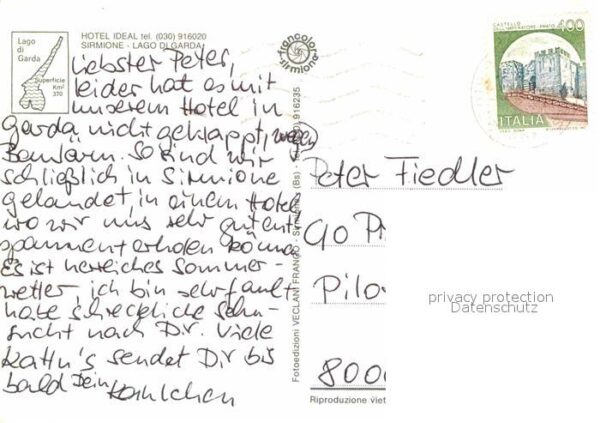 HOTEL IDEAL tel. (030) 916020
SIRMIONE - LAGO DI GARDA
Lago
di
Garda
Superficie
Km²
370
francolor
sirmione
CASTELLO
400
ITALIA
Liebster Peter,
leider hat es mit
unserem Hotel in
Garda nicht geklappt, wegen
Baulärm. So sind wir
schließlich in Sirmione
gelandet, in einem Hotel
wo wir uns sehr gut ent
spannent erholen
Es ist herrliches Sommer-
wetter, ich bin sehr faul +
habe schreckliche Sehn-
sucht nach Dir. Viele
sendet Dir bis
bald Dein
Fotoedizioni VECLANI FRANCO - Sirmione (Bs) - Tel. (030) 916235
Peter Fiedler
Pilo
800
privacy protection
Datenschutz
Riproduzione viet